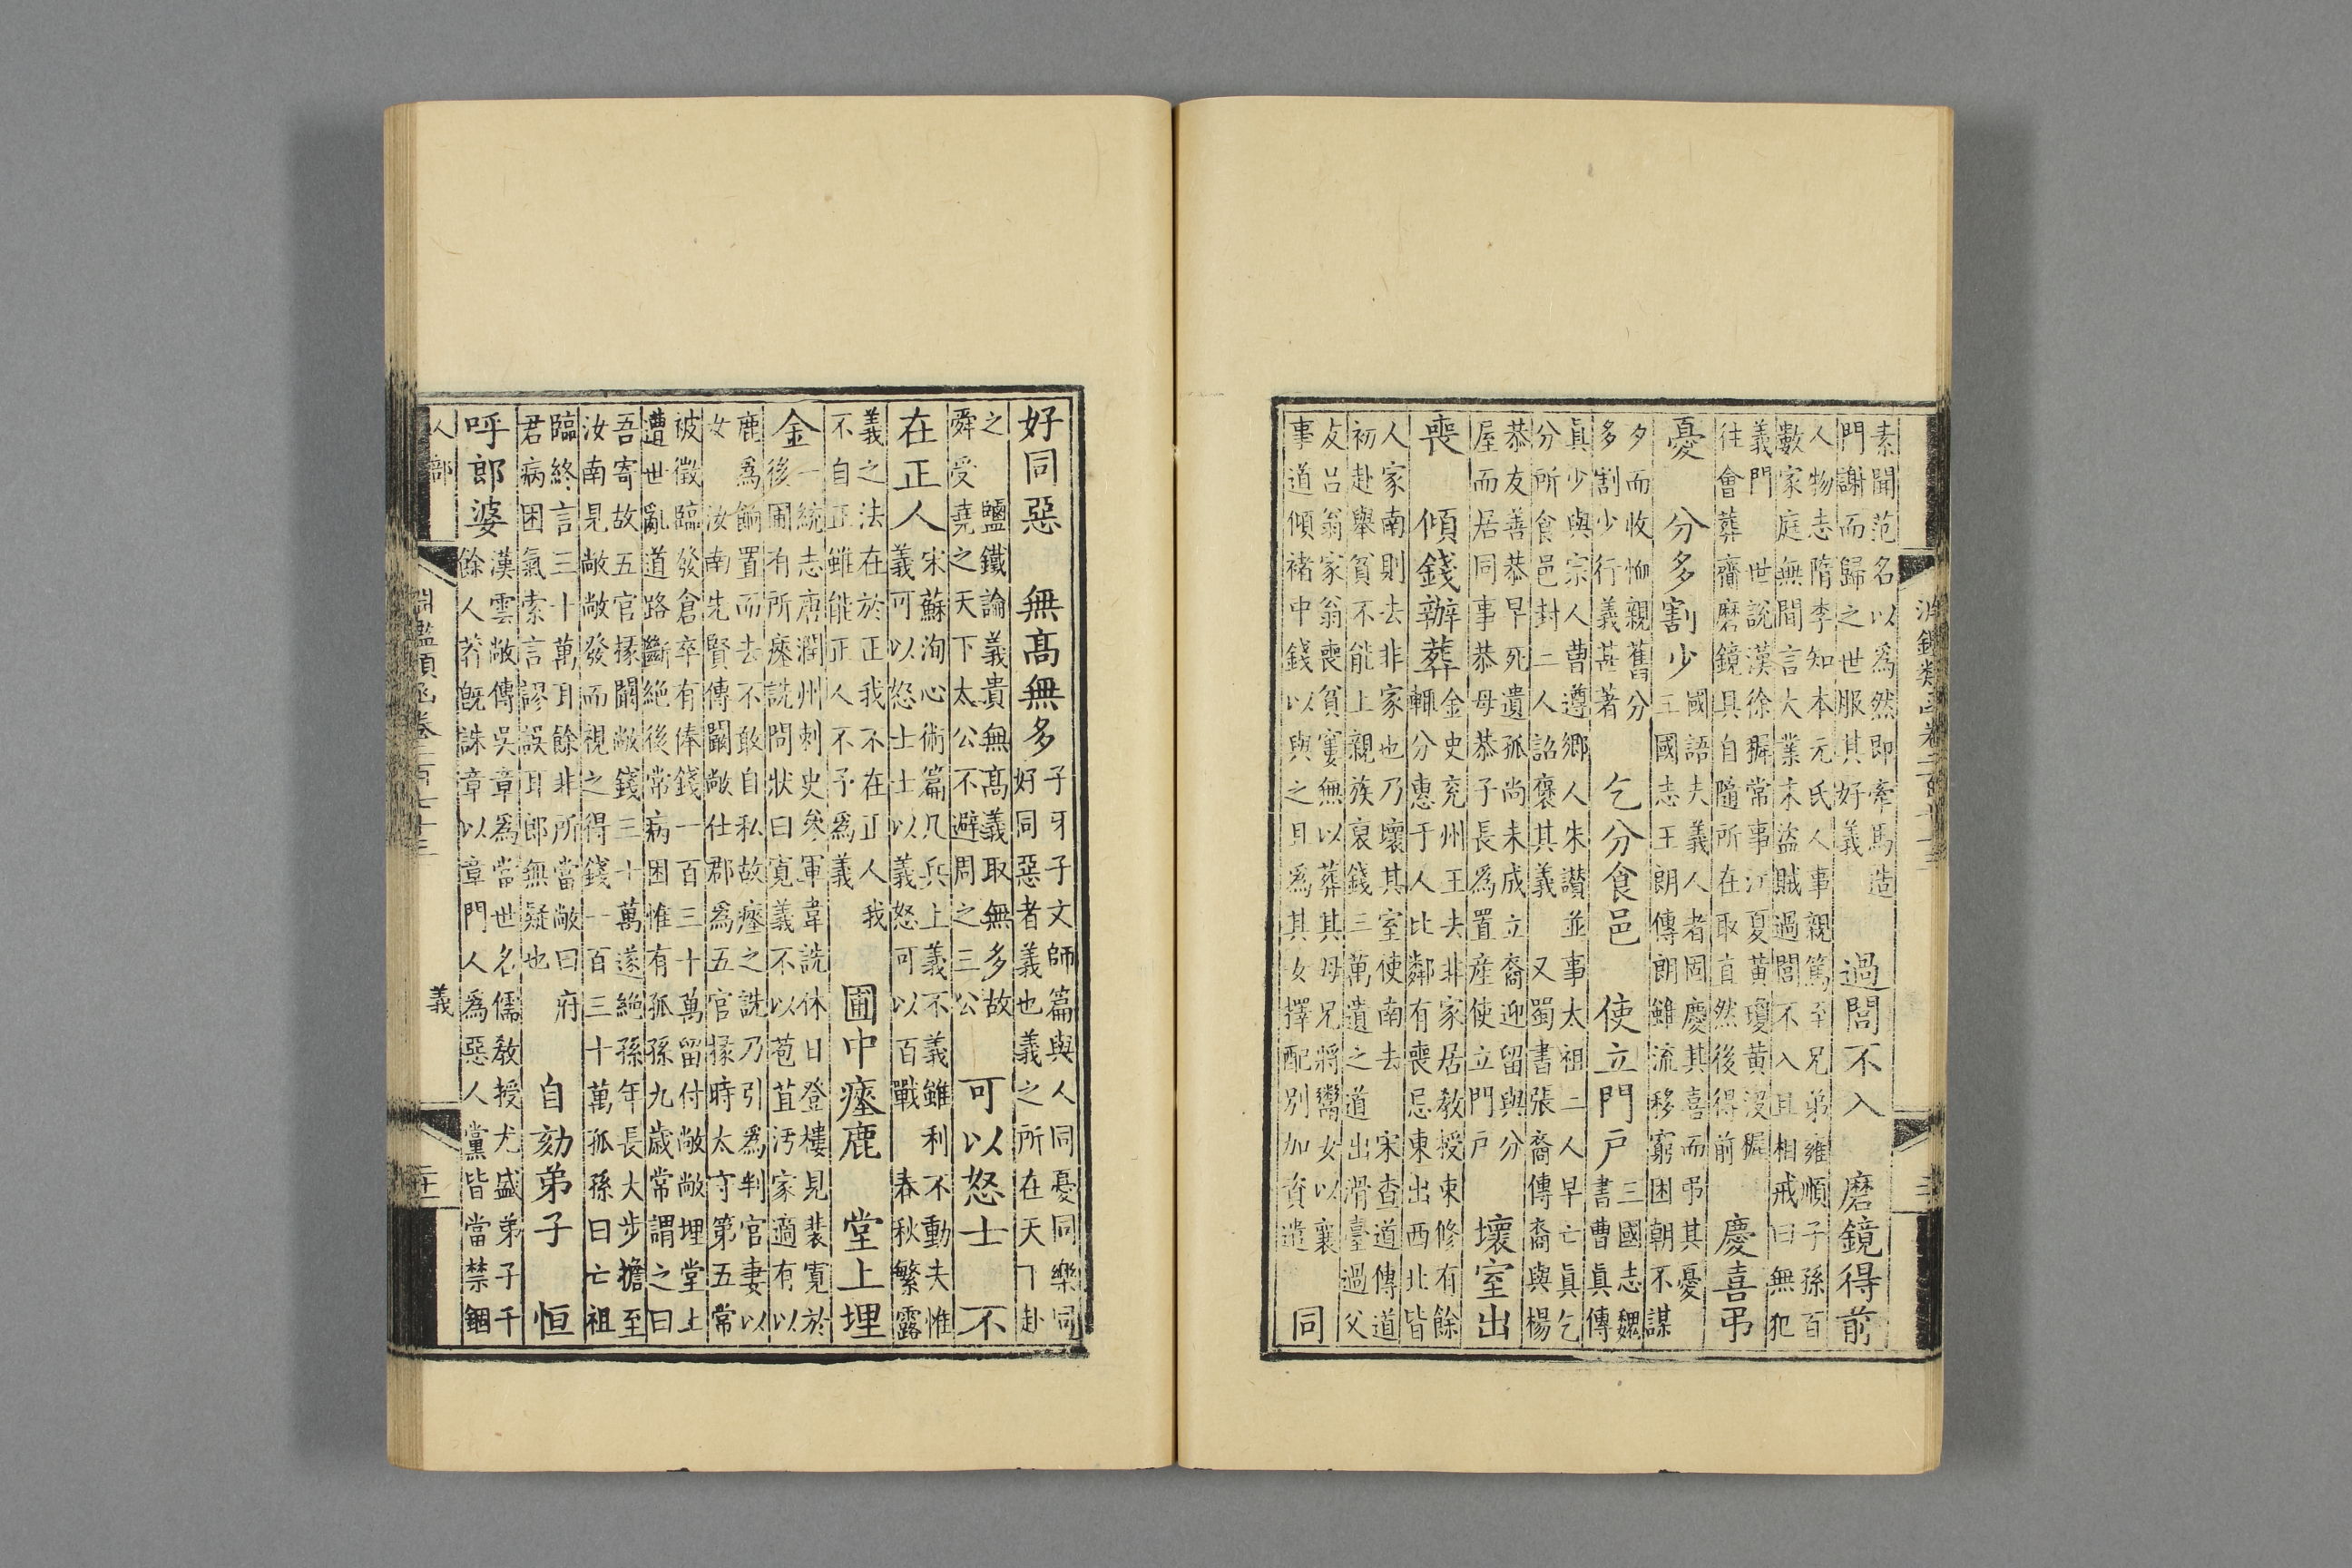 淵鑑類函卷二百七十三
素聞范名以爲然即牽馬造
門謝而歸之世服其好義
過閭不入 磨鏡得前
人物志隋李知本元氏人事親篤至兄弟雍順子孫百
數家庭無間言大業末盜賊過閭不入且相戒曰無犯
義門 世說漢徐穉常事江夏黃瓊黃沒穉
往會葬齎磨鏡具自隨所在取直然後得前
慶喜弔
憂 分多割少
國語夫義人者固慶其喜而弔其憂
三國志王朗傳朗雖流移窮困朝不謀
夕而收恤親舊分
多割少行義甚著
乞分食邑 使立門戶
三國志魏
書曹眞傳
眞少與宗人曹遵鄉人朱讃並事太祖二人早亡眞乞
分所食邑封二人詔褒其義 又蜀書張裔傳裔與楊
恭友善恭早死遺孤尚未成立裔迎留與分
屋而居同事恭母恭子長爲置産使立門戶
壞室出
喪 傾錢辦葬
金史兗州王去非家居教授束修有餘
輙分惠于人比鄰有喪忌東出西北皆
人家南則去非家也乃壞其室使南去 宋查道傳道
初赴舉貧不能上親族裒錢三萬遺之道出滑臺過父
友呂翁家翁喪貧窶無以葬其母兄將鬻女以襄
事道傾褚中錢以與之且爲其女擇配別加資遣
同
好同惡 無髙無多
子牙子文師篇與人同憂同樂同
好同惡者義也義之所在天下赴
之 鹽鐵論義貴無髙義取無多故
舜受堯之天下太公不避周之三公
可以怒士 不
在正人
宋蘇洵心術篇凡兵上義不義雖利不動夫惟
義可以怒士士以義怒可以百戰 春秋繁露
義之法在於正我不在正人我
不自正雖能正人不予爲義
圃中瘞鹿 堂上埋
金
一統志唐潤州刺史矦軍韋詵休日登樓見裴寬於
後圃有所瘞詵問狀曰寬義不以苞苴汚家適有以
鹿爲餉置而去不敢自私故瘞之詵乃引爲判官妻以
女 汝南先賢傳闞敞仕郡爲五官掾時太守第五常
被徵臨發倉卒有俸錢一百三十萬留付敞敞埋堂上
遭世亂道路斷絕後常病困惟有孤孫九歲常謂之曰
吾寄故五官掾闞敞錢三十萬遂絕孫年長大步擔至
汝南見敞敞發而視之得錢一百三十萬孤孫曰亡祖
臨終言三十萬耳餘非所當敞曰府
君病困氣索言謬誤耳郎無疑也
自劾弟子 恒
呼郎婆
漢雲敞傳吳章爲當世名儒教授尤盛弟子千
餘人莽旣誅章以章門人爲惡人黨皆當禁錮
人部
淵鑑類函卷二百七十三
義